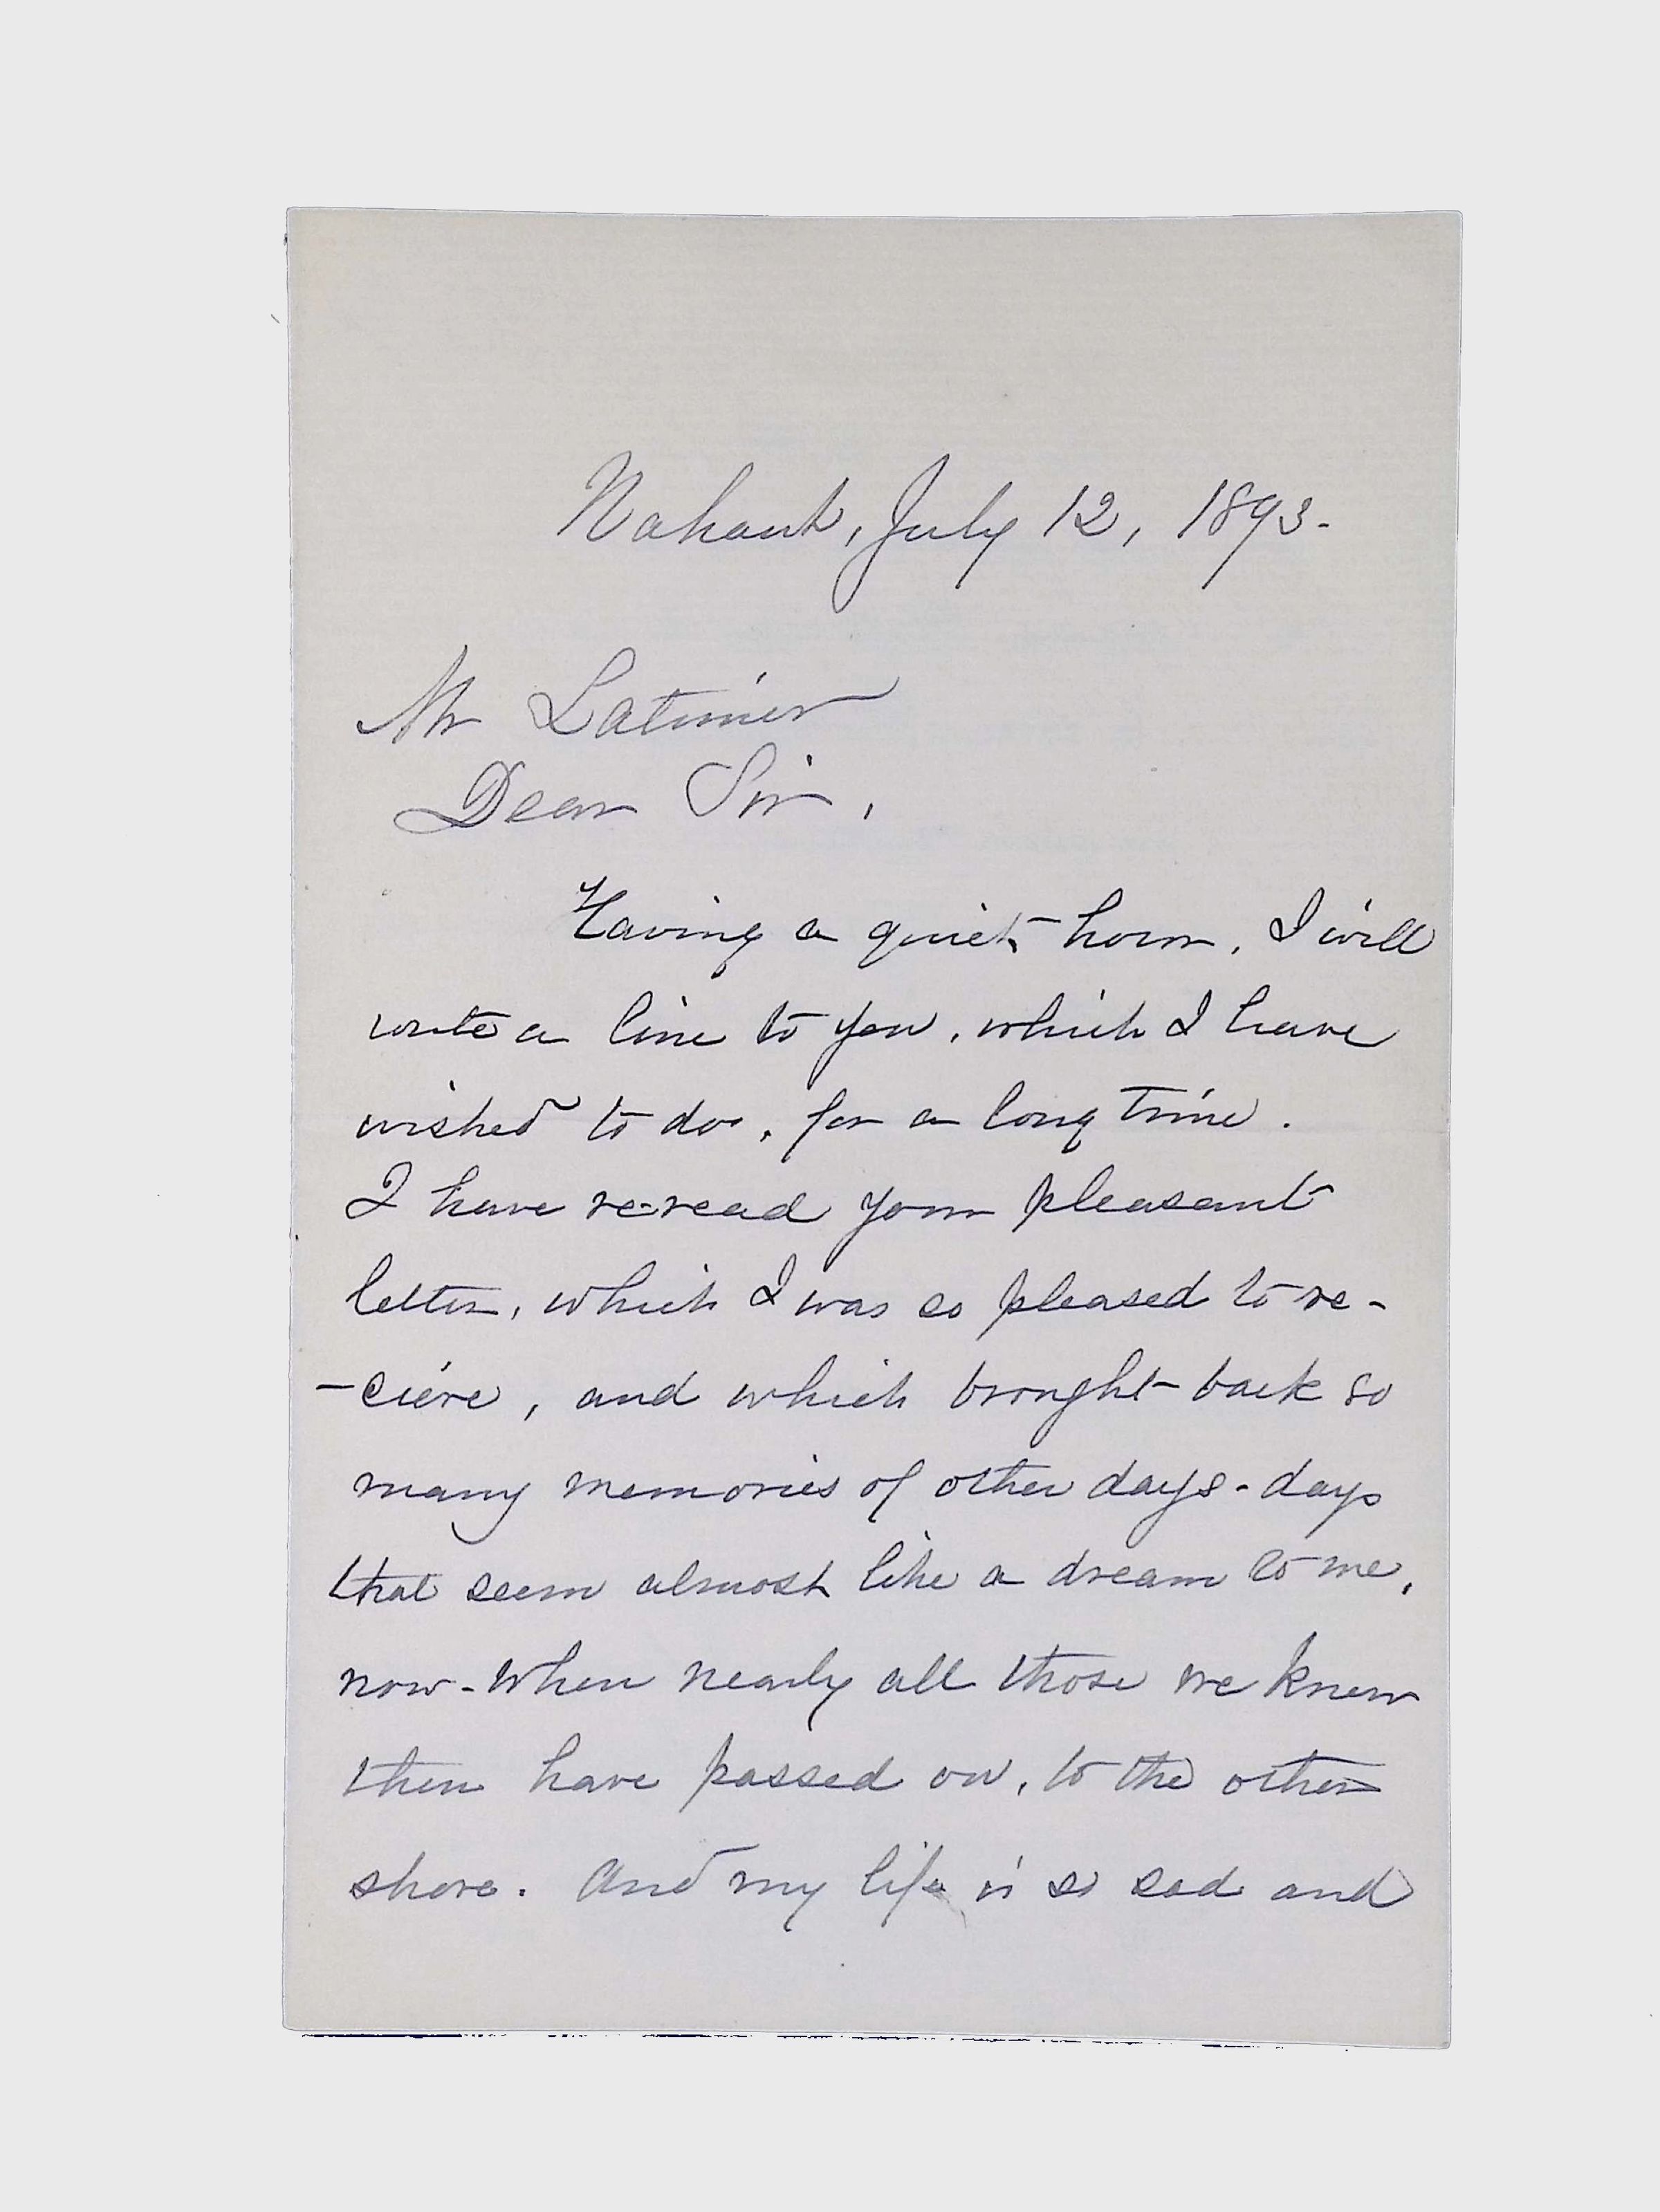 Nahant, July 12, 1893.
Mr Latimer
Dear Sir,
Having a quiet hour, I will
write a line to you, which I have
wished to do, for a long time.
I have re-read your pleasant
letter, which I was so pleased to re-
-cieve, and which brought back so
many memories of other days - days
that seem almost like a dream to me,
now - when nearly all those we knew
then have passed on, to the other
shore. And my life is so sad and